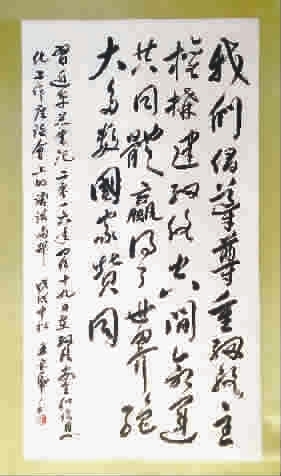 我們倡導尊重網絡主
權構建網絡空間命運
共同體贏得了世界絕
大多數國家贊同
習近平總書記二零一六年四月十九日在網絡安全和信息
化工作座談會上的講話摘抄 戊戌中秋